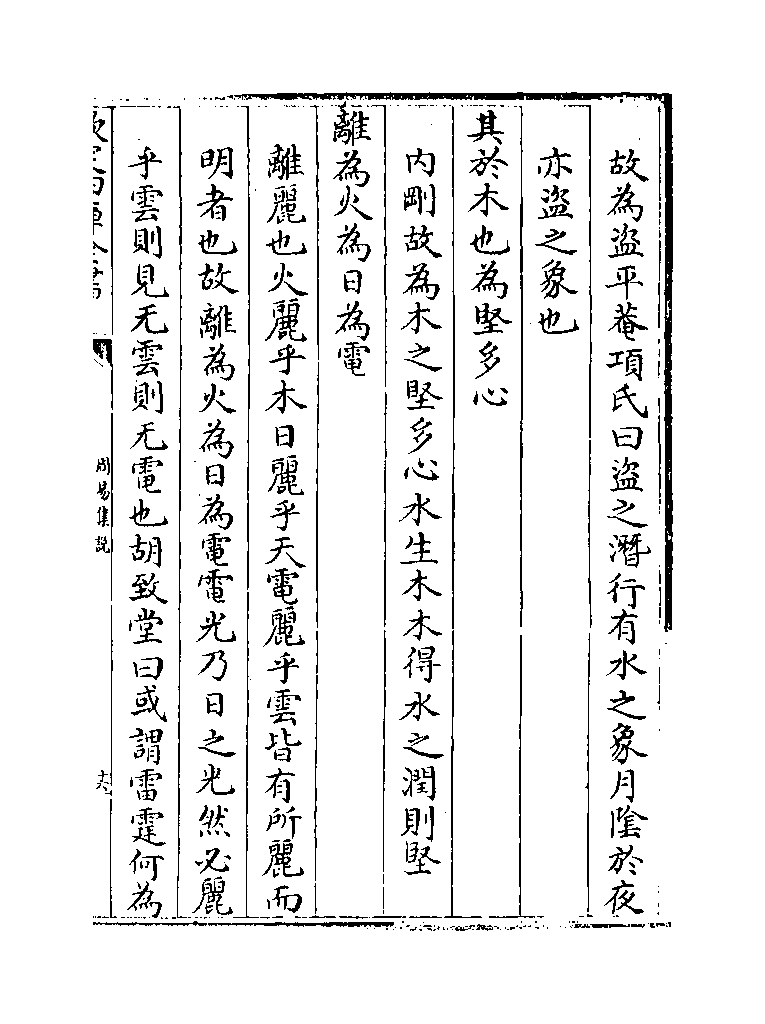 故為盜平菴項氏曰盜之潛行有水之象月隂於夜
亦盜之象也
其於木也為堅多心
内剛故為木之堅多心水生木木得水之潤則堅
離為火為日為電
離麗也火麗乎木日麗乎天電麗乎雲皆有所麗而
明者也故離為火為日為電電光乃日之光然必麗
乎雲則見无雲則无電也胡致堂曰或謂雷霆何為
周易集說